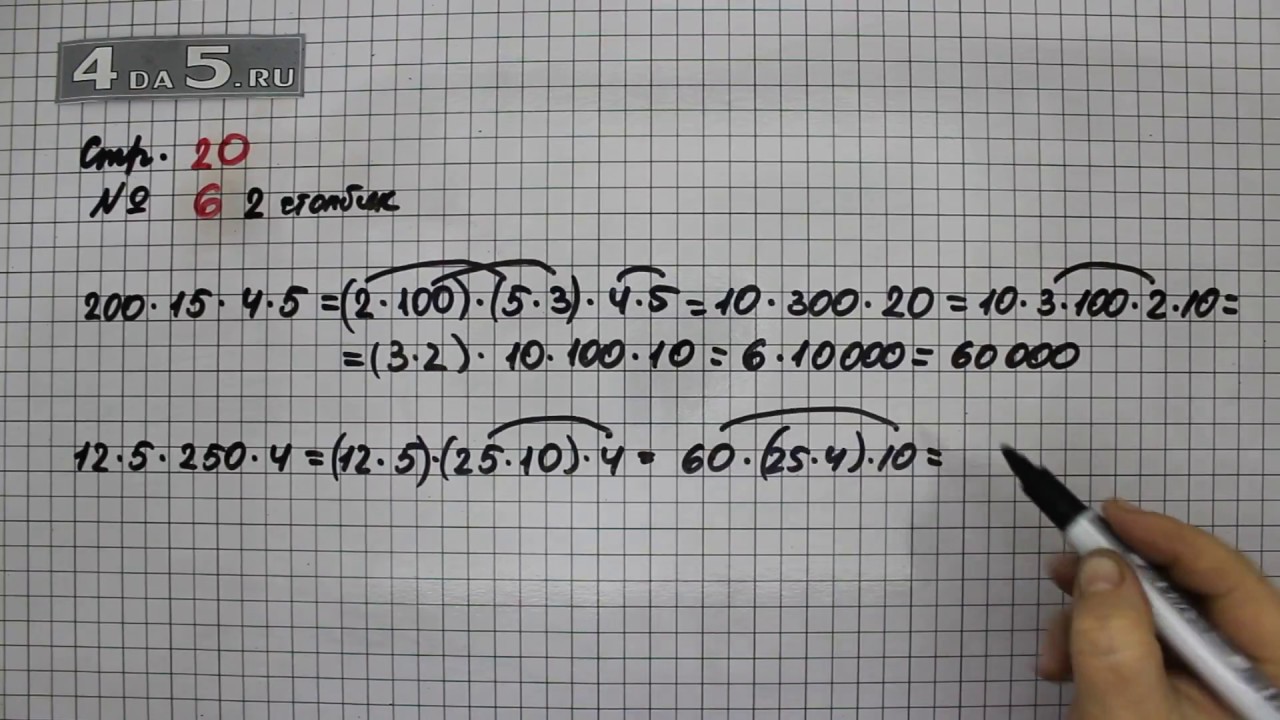 4 DA 5.RU
Стр. 20
№ 6 2 столбик
200·15·4·5=(2·100)·(5·3)·4·5=10·300·20=10·3·100·2·10=
=(3·2)·10·100·10=6·10000=60000
12·5·250·4=(12·5)·(25·10)·4= 60·(25·4)·10=